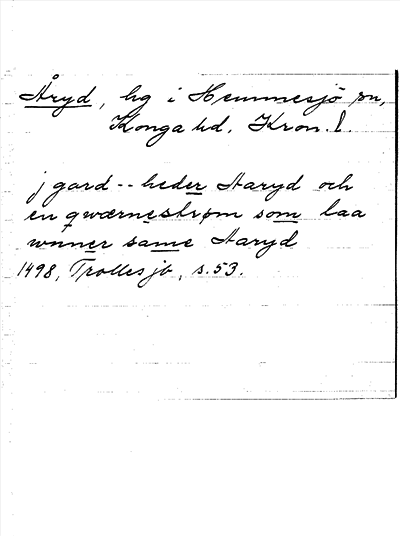 Åryd, hg i Hemmesjö sn,
Konga hd. Kron. l.
j gard -- heder Aaryd och
en qwærnestrøm som laa
wnner same Aaryd
1498, Trolles jb, s. 53.